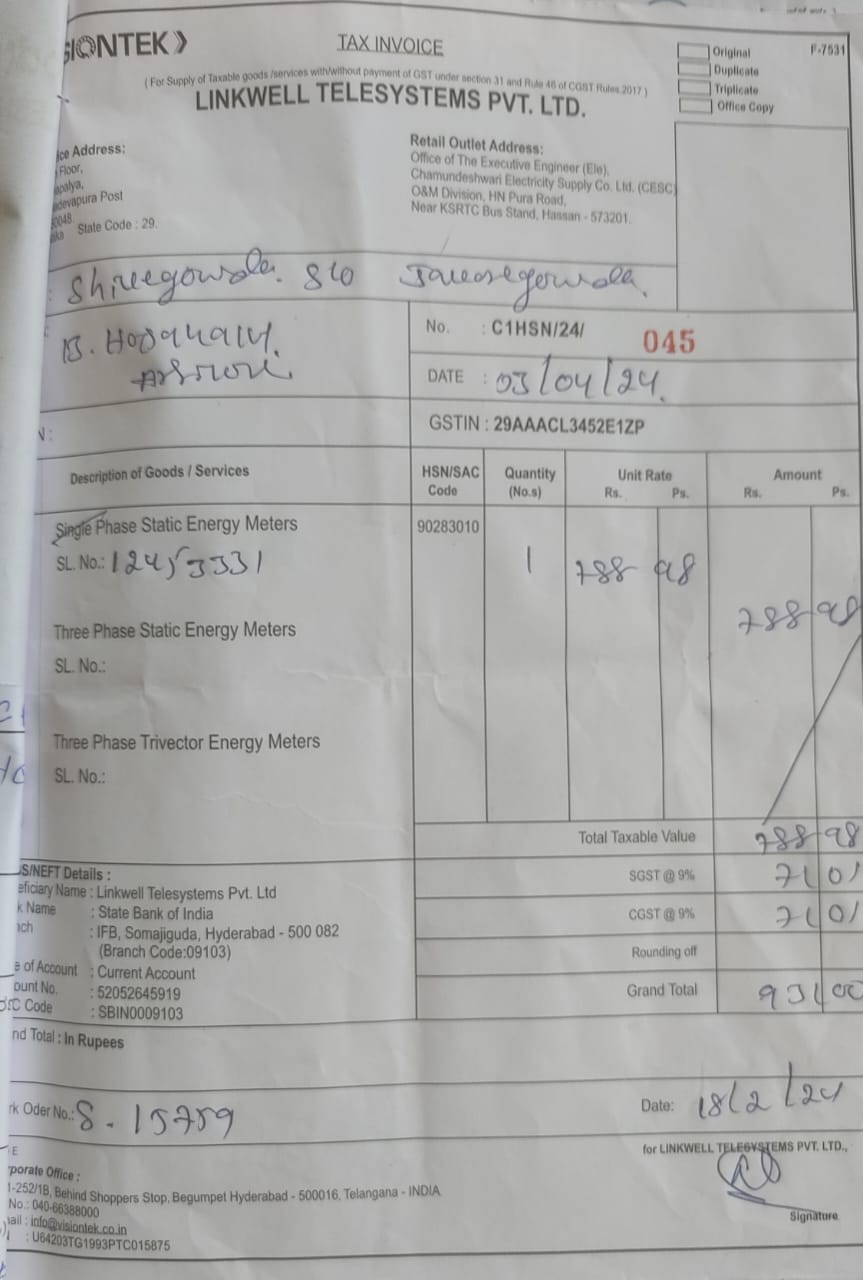 SIONTEK
TAX INVOICE
Original
F-7531
Duplicate
Triplicate
Office Copy
( For Supply of Taxable goods /services with/without payment of GST under section 31 and Rule 46 of CGST Rules.2017 )
LINKWELL TELESYSTEMS PVT. LTD.
ice Address:
Floor,
apalya,
adevapura Post
0048.
aka State Code : 29.
Retail Outlet Address:
Office of The Executive Engineer (Ele),
Chamundeshwari Electricity Supply Co. Ltd. (CESC)
O&M Division, HN Pura Road,
Near KSRTC Bus Stand, Hassan - 573201.
S/o
No. : C1HSN/24/ 045
DATE : 03/04/24.
GSTIN : 29AAACL3452E1ZP
N :
Description of Goods / Services
HSN/SAC Code
Quantity (No.s)
Unit Rate Rs. Ps.
Amount Rs. Ps.
Single Phase Static Energy Meters 90283010
SL. No.: 12453331 1 788 98
788 98
Three Phase Static Energy Meters
SL. No.:
Three Phase Trivector Energy Meters
SL. No.:
Total Taxable Value 788 98
SGST @ 9% 71 01
CGST @ 9% 71 01
Rounding off
Grand Total 931 00
S/NEFT Details :
eficiary Name : Linkwell Telesystems Pvt. Ltd
k Name : State Bank of India
nch : IFB, Somajiguda, Hyderabad - 500 082
(Branch Code:09103)
e of Account : Current Account
ount No. : 52052645919
SC Code : SBIN0009103
nd Total : In Rupees
rk Oder No.: S. 15759
Date: 18/2/24
for LINKWELL TELESYSTEMS PVT. LTD.,
Signature
E
rporate Office :
1-252/1B, Behind Shoppers Stop, Begumpet Hyderabad - 500016, Telangana - INDIA
No.: 040-66388000
ail : info@visiontek.co.in
: U64203TG1993PTC015875